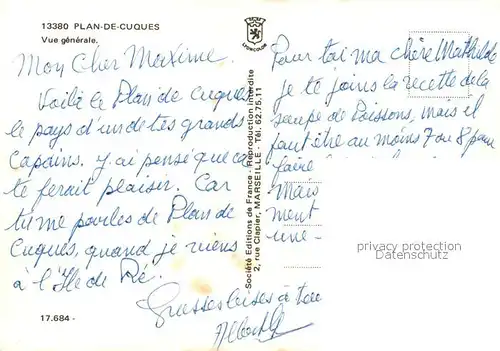 13380 PLAN-DE-CUQUES
Vue générale.
LYONCOLOR
Mon Cher Maxime.
Voilà le Plan de Cuques
le pays d'un de tes grands
Copains. y, ai pensé que ça
te ferait plaisir. Car
tu me parles de Plan de
Cuques, quand je viens
à l'Ile de Ré.
Grosses bises à toi
Albert
17.684 -
Société Editions de France - Reproduction interdite
2, rue Clapier, MARSEILLE - Tél. 62.75.11
Pour toi ma chère Mathilde
je te joins la recette de la
soupe de Poissons, mais il
faut être au moins 7 ou 8 pour
faire
Mais
ment
une -
privacy protection
Datenschutz